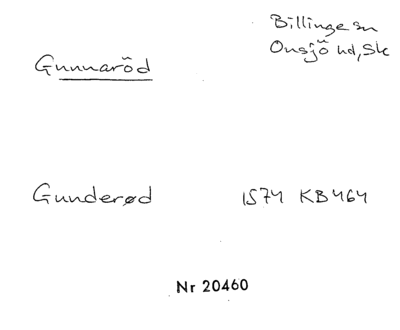 Billinge sn
Gunnaröd
Onsjö hd, Sk
Gunderød 1574 KB 464
Nr 20460